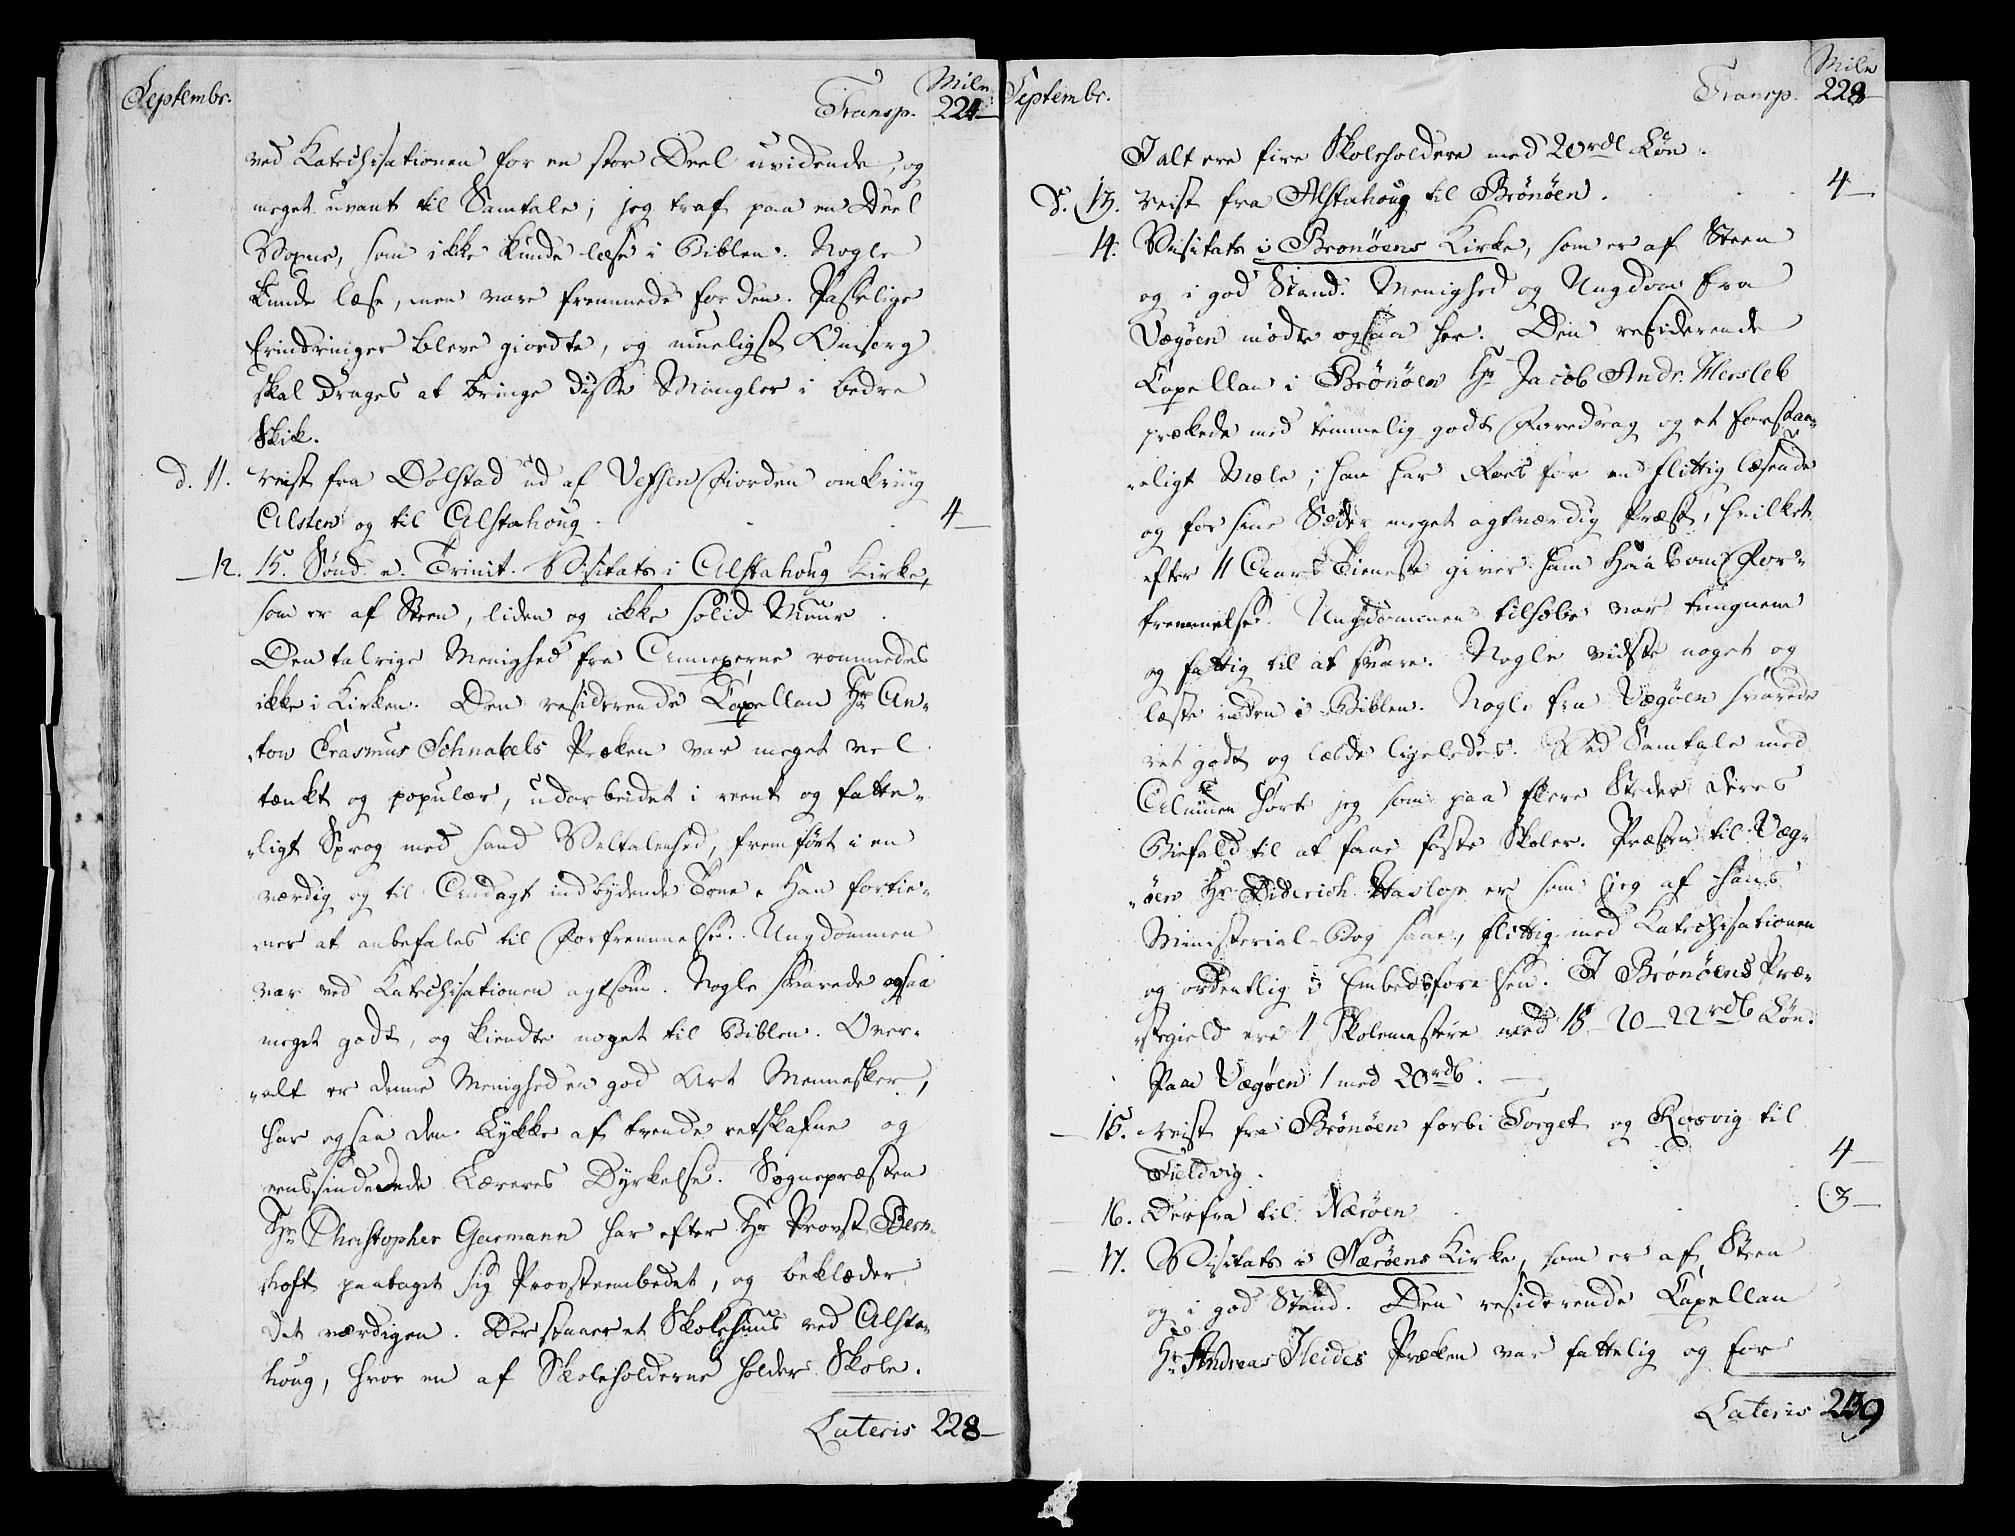 Septembr.
Mile
Transp. 224
ved Katechisationen for en stor Deel uvidende, og
meget uvant til Samtale; jeg traf paa en Deel
Voxne, som ikke kunde læse i Biblen. Nogle
kunde læse, men vare fremmede for den. Passelige
Erindringer bleve giordte, og mueligst Omsorg
skal drages at bringe disse Mangler i bedre
Skik.
d. 11. reist fra Dolstad ud af Vefsen Fiorden omkring
Alsten og til Alstahoug . . . 4
12. 15. Sønd. e. Trinit. Visitats i Alstahoug Kirke,
som er af Steen, liden og ikke solid Muur.
Den talrige Menighed fra Annexerne rommedes
ikke i Kirken. Den residerende Capellan Hr. An-
ton Erasmus Schnabels Præken var meget vel
tænkt og populær, udarbeidet i reent og fatte-
ligt Sprog med sand Veltalenhed, fremført i en
værdig og til Andagt indbydende Tone. Han fortie-
ner at anbefales til Forfremmelse. Ungdommen
var ved Katechisationen agtsom. Nogle svarede ogsaa
meget godt, og kiendte noget til Biblen. Over-
alt er denne Menighed en god Art Mennesker,
har ogsaa den Lykke af tvende retskafne og
eenssindede Læreres Dyrkelse. Sognepræsten
Hr. Christopher Garmann har efter Hr. Provst Bern-
hoft paataget sig Provsteembedet, og beklæder
det værdigen. Der staaer et Skolehuus ved Alsta-
houg, hvor en af Skoleholderne holder Skole.
Lateris 228
Septembr.
Mile
Transp. 228
I alt ere fire Skoleholdere med 20 rdl Løn.
d. 13. reist fra Alstahoug til Brönöen. 4
14. Visitats i Brönöens Kirke, som er af Steen
og i god Stand. Menighed og Ungdom fra
Vægöen mødte ogsaa her. Den residerende
Capellan i Brönöen Hr Jacob Andr. Hersleb
prækede med temmelig godt Foredrag og et forstaae-
eligt Mæle; han har Roes for en flittig læsende
og for sine Sæder meget agtværdig Præst, hvilket
efter 11 Aars Tieneste giver ham Haab om For-
fremmelse. Ungdommen tilhobe var tungnem
og fattig til at svare. Nogle vidste noget og
læste inden i Biblen. Nogle fra Vægöen svarede
ret godt og læste ligeledes. Ved Samtale med
Almuen hørte jeg som paa flere Steder deres
Biefald til at faae faste Skoler. Præsten til Væg-
öen Hr Diderich Haslop er som jeg af hans
Ministerial-Bog saae, flittig med Katechisationen
og ordentlig i Embedsførelsen. I Brönöens Præ-
stegield ere 4 Skolemestere med 18 - 20 - 22 rdl Løn.
Paa Vægöen 1 med 20 rdl.
15. reist fra Brönöen forbi Torget og Rosvig til
Fieldvig. 4
16. Derfra til Næröen 3
17. Visitats i Næröens Kirke, som er af Steen
og i god Stand. Den residerende Capellan
Hr Andreas Heides Præken var fattelig og for
Lateris 239